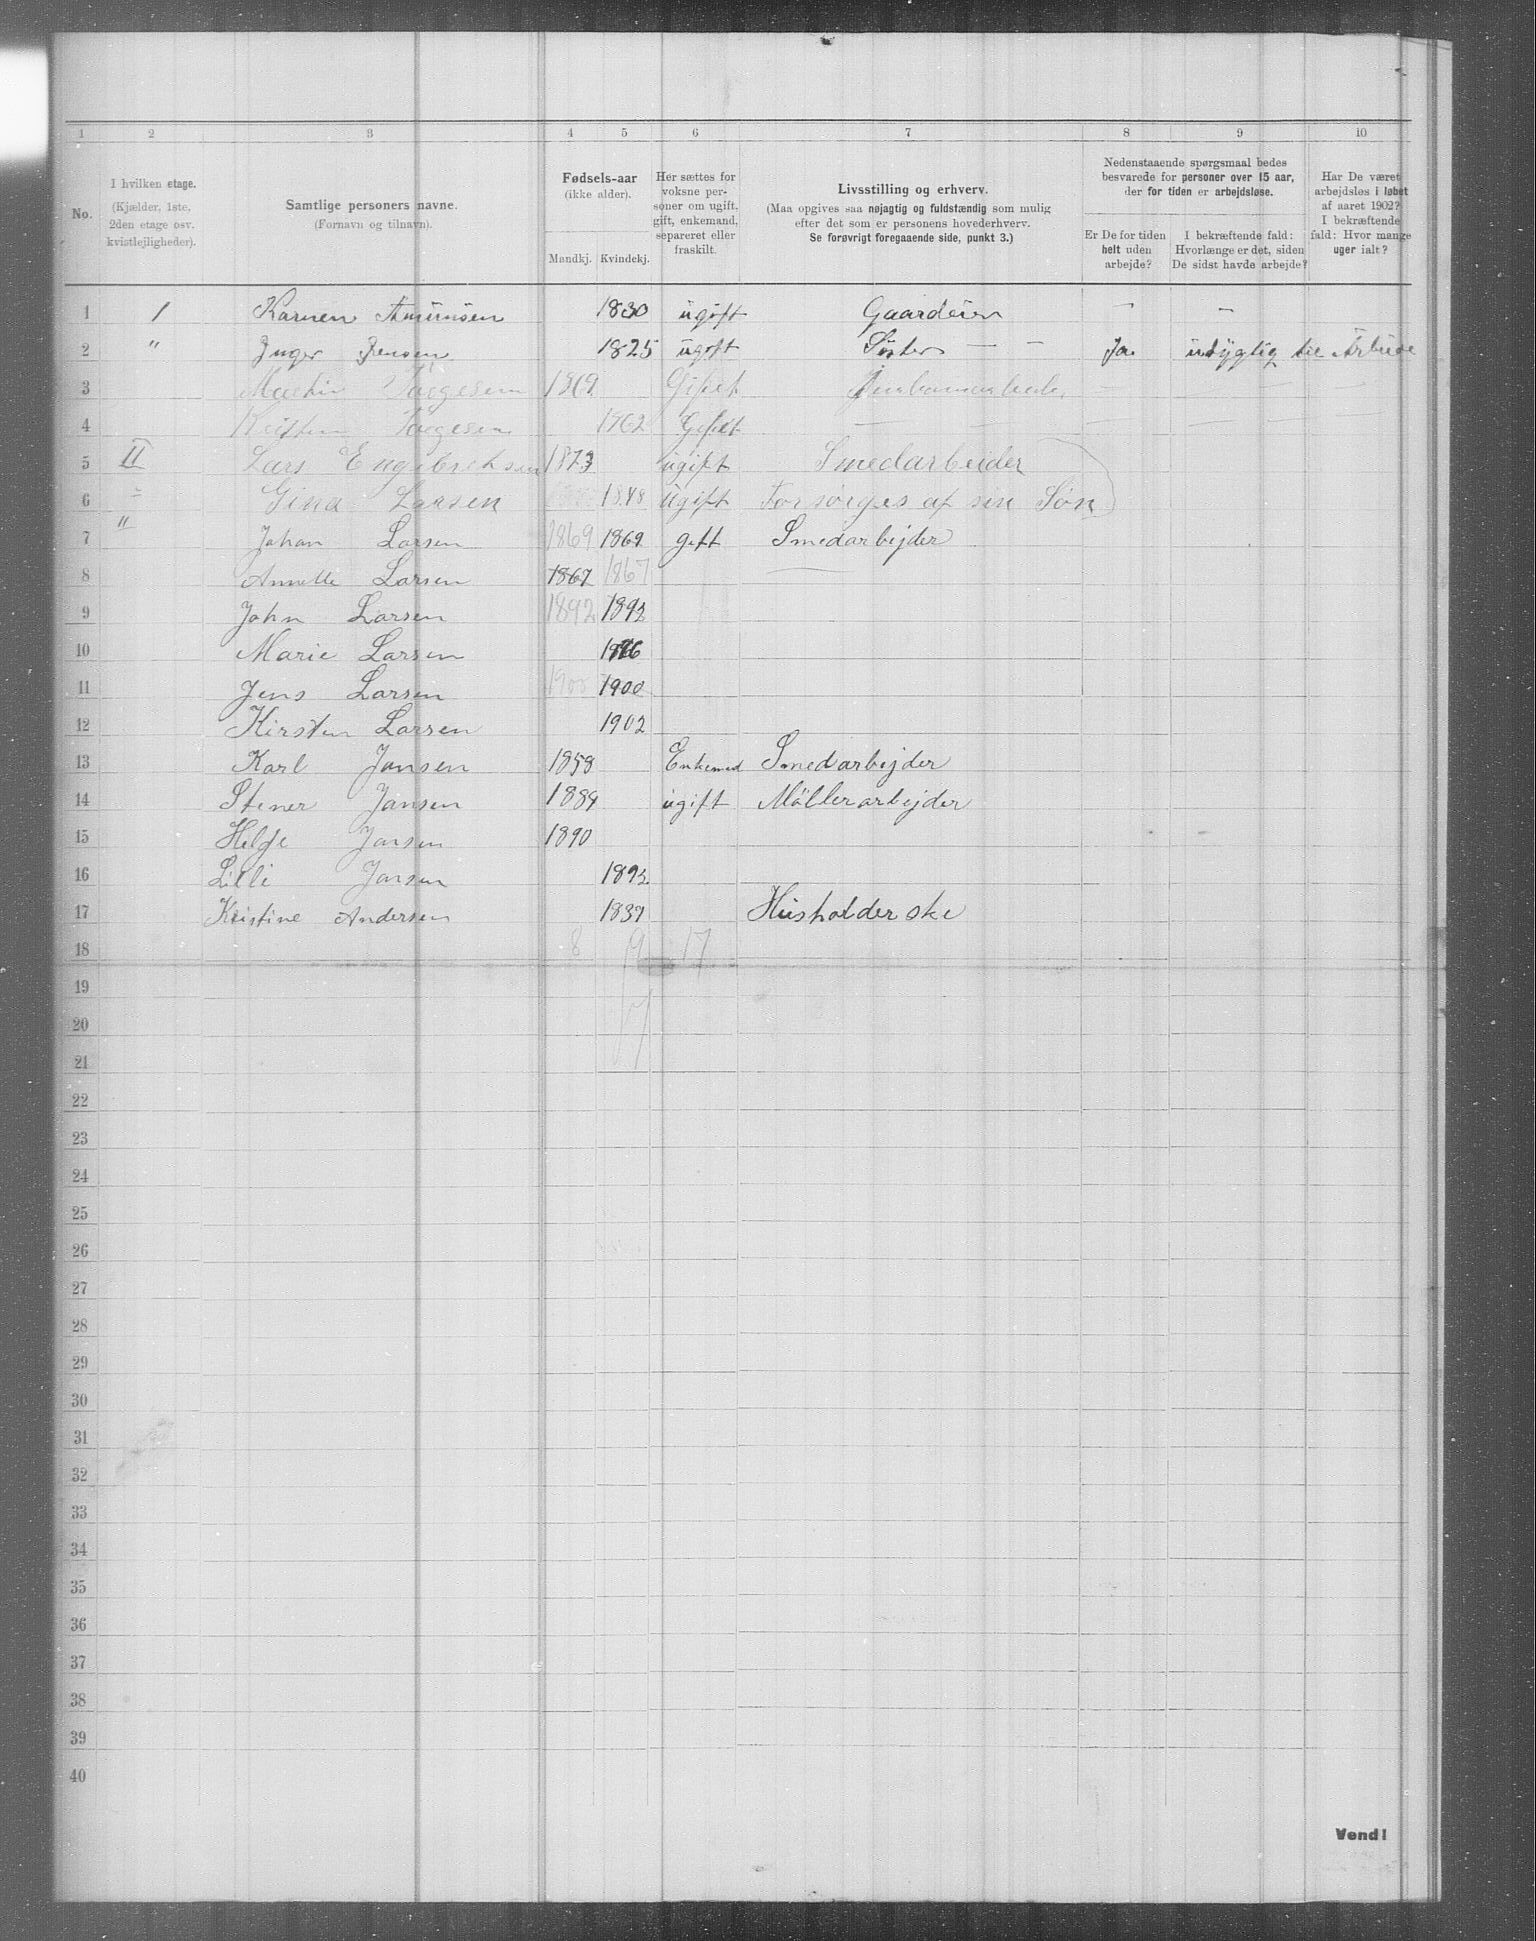 1 2 3 4 5 6 7 8 9 10
No.
I hvilken etage.
(Kjælder, 1ste,
2den etage osv.
kvistlejligheder).
Samtlige personers navne.
(Fornavn og tilnavn).
Fødsels-aar
(ikke alder).
Mandkj. Kvindekj.
Her sættes for
voksne per-
soner om ugift,
gift, enkemand,
separeret eller
fraskilt.
Livsstilling og erhverv.
(Maa opgives saa nøjagtig og fuldstændig som mulig
efter det som er personens hovederhverv.
Se forøvrigt foregaaende side, punkt 3.)
Nedenstaaende spørgsmaal bedes
besvarede for personer over 15 aar,
der for tiden er arbejdsløse.
Er De for tiden
helt uden
arbejde?
I bekræftende fald:
Hvorlænge er det, siden
De sidst havde arbejde?
Har De været
arbejdsløs i løbet
af aaret 1902?
I bekræftende
fald: Hvor mange
uger ialt?
1 1 Karnen 1830 ugift Gaardeier — —
2 " Inger Jensen 1825 ugift Søster — — Ja udygtig til Arbeide
3 Martin 1869 Gift —
4 1862 Gift —
5 II Lars Engebrektsen 1873 ugift Smedarbeider
6 " Gina Larsen 1848 ugift Forsørges af sin Søn
7 " Johan Larsen 1869 1869 gift Smedarbejder
8 Annette Larsen 1867 1867
9 John Larsen 1892 1892
10 Marie Larsen
11 Jens Larsen 1900 1900
12 Kirsten Larsen 1902
13 Karl Jansen 1858 Enkemd Smedarbejder
14 Stener Jansen 1889 ugift Möllerarbejder
15 Helge Jansen 1890
16 Lilli Jansen 1893
17 Kristine Andersen 1839 Husholderske
18 8 9 17
19
20
21
22
23
24
25
26
27
28
29
30
31
32
33
34
35
36
37
38
39
40
Vend!